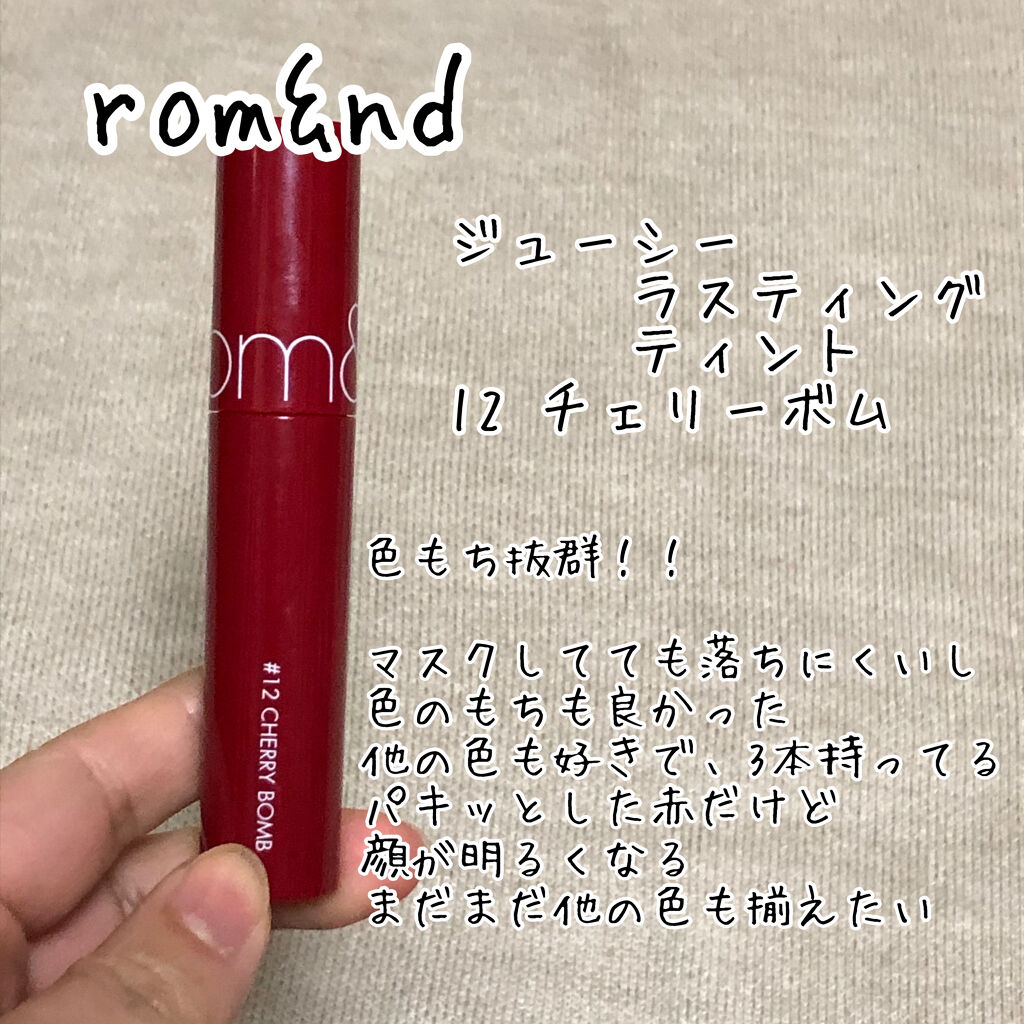 rom&nd
ジューシー
ラスティング
ティント
12 チェリーボム
om&
#12 CHERRY BOMB
色もち抜群！！
マスクしてても落ちにくいし
色のもちも良かった
他の色も好きで、3本持ってる
パキッとした赤だけど
顔が明るくなる
まだまだ他の色も揃えたい